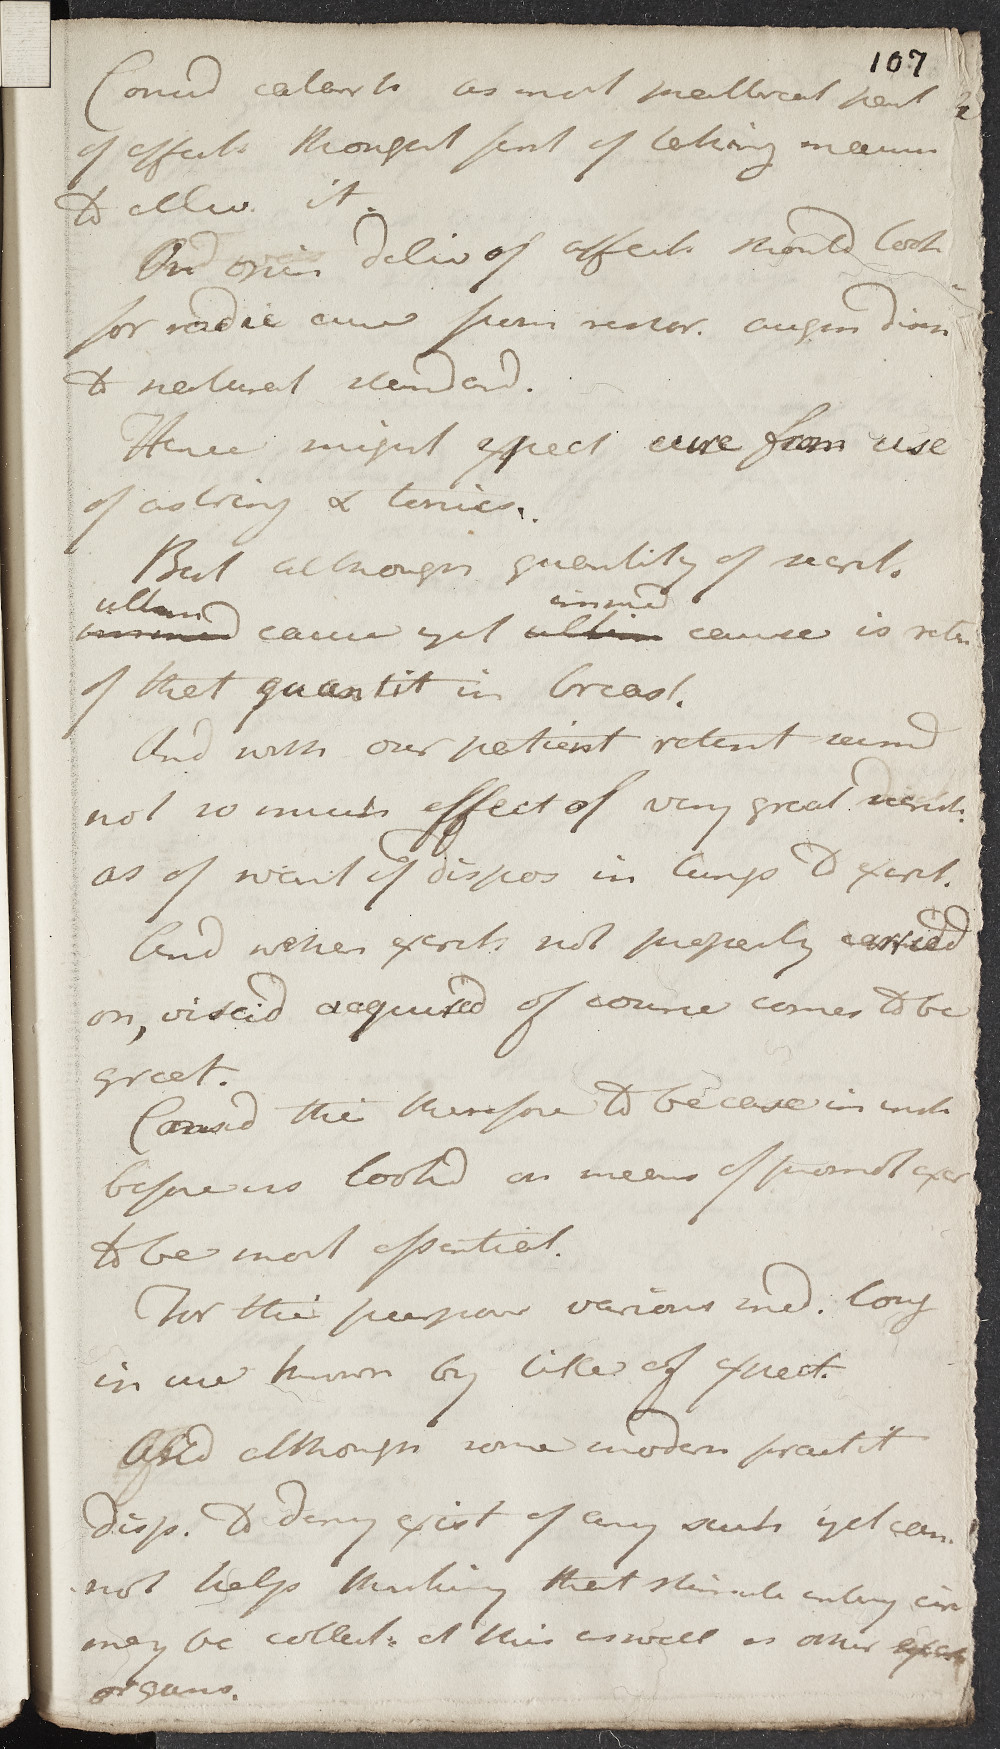 107
Consid catarrh as most
of effects thought first of taking
to allev. it.
And deliv of effects should look
for radic cure from restor. augm dim
to natural standard.
Hence might expect cure from use
of astring & tonics.
But although quantity of secret.
ultim immed
immed cause yet ultim cause is reten
of that quantit in breast.
And with our patient retent seemd
not so much effect of very great secret.
as of want of dispos in lungs to excret.
And when excret. not properly carried
on, viscid acquired of course comes to be
great.
Consid this therefore to be case in inst
before us lookd on means of promot excr
to be most essential.
For this purpose various med. long
in use known by title of expect.
And although some modern practit
disp. to deny exist of any such yet can
not help thinking that
may be at this as well as other
organs.